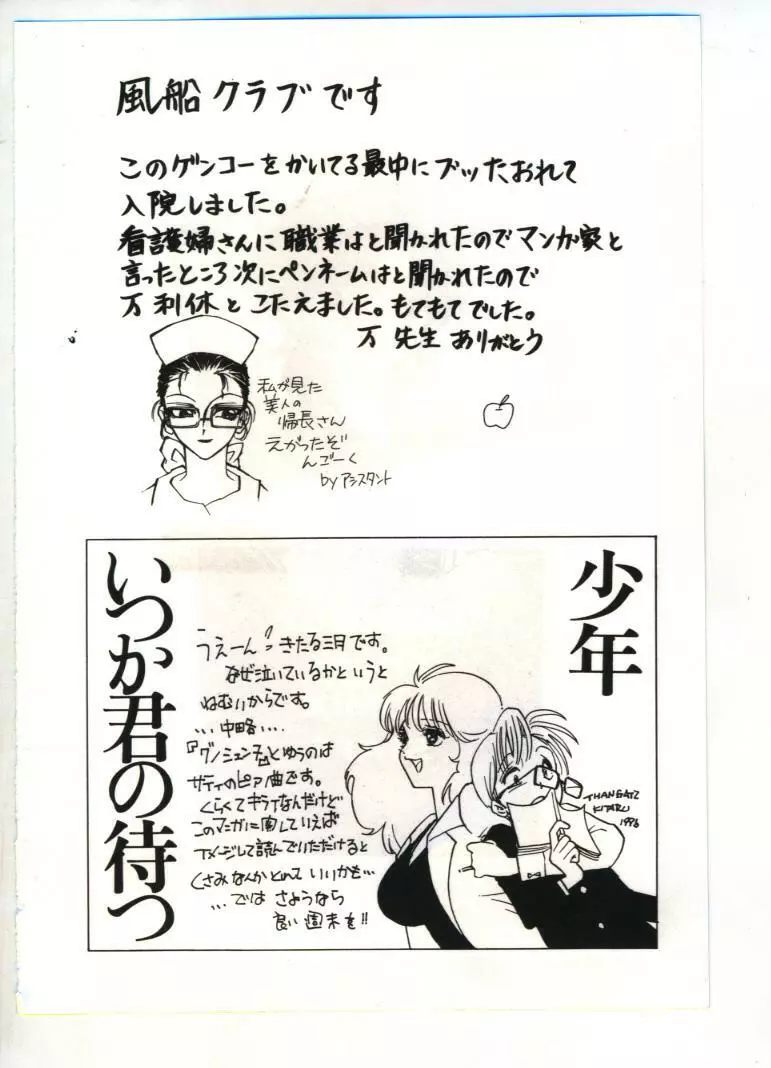 風船クラブです
このゲンコーをかいてる最中にブッたおれて
入院しました。
看護婦さんに職業はと聞かれたのでマンガ家と
言ったところ次にペンネームはと聞かれたので
万利休とこたえました。もてもてでした。
万先生ありがとう
私が見た
美人の
帰長さん
えがったぞ
んごーく
byアシスタント
少年
いつか君の待つ
うえーん!きたる三月です。
なぜ泣いているかというと
ねむいからです。
...中略...
『グノシェンヌ』とゆうのは
サティのピアノ曲です。
くらくてキライなんだけど
このマンガに関していえば
イメージして読んでいただけると
くさみなんかとれて いいかも...
...では さようなら
良い週末を!!
THANGATZ
KITARU
1996